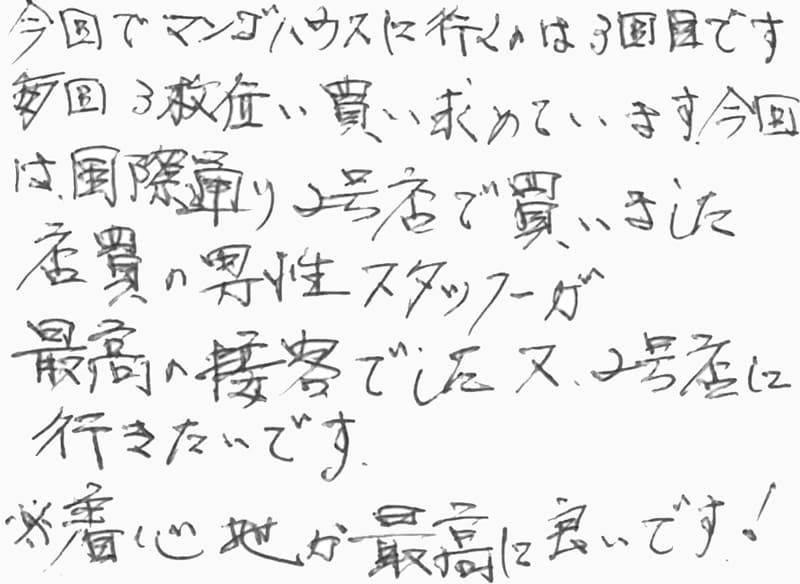 今回でマンゴハウスに行くのは3回目です
毎回3枚位い買い求めています。今回
は、国際通り2号店で買いました
店買の男性スタッフーが
最高の接客でした又、2号店に
行きたいです。
※着心地が最高に良いです!